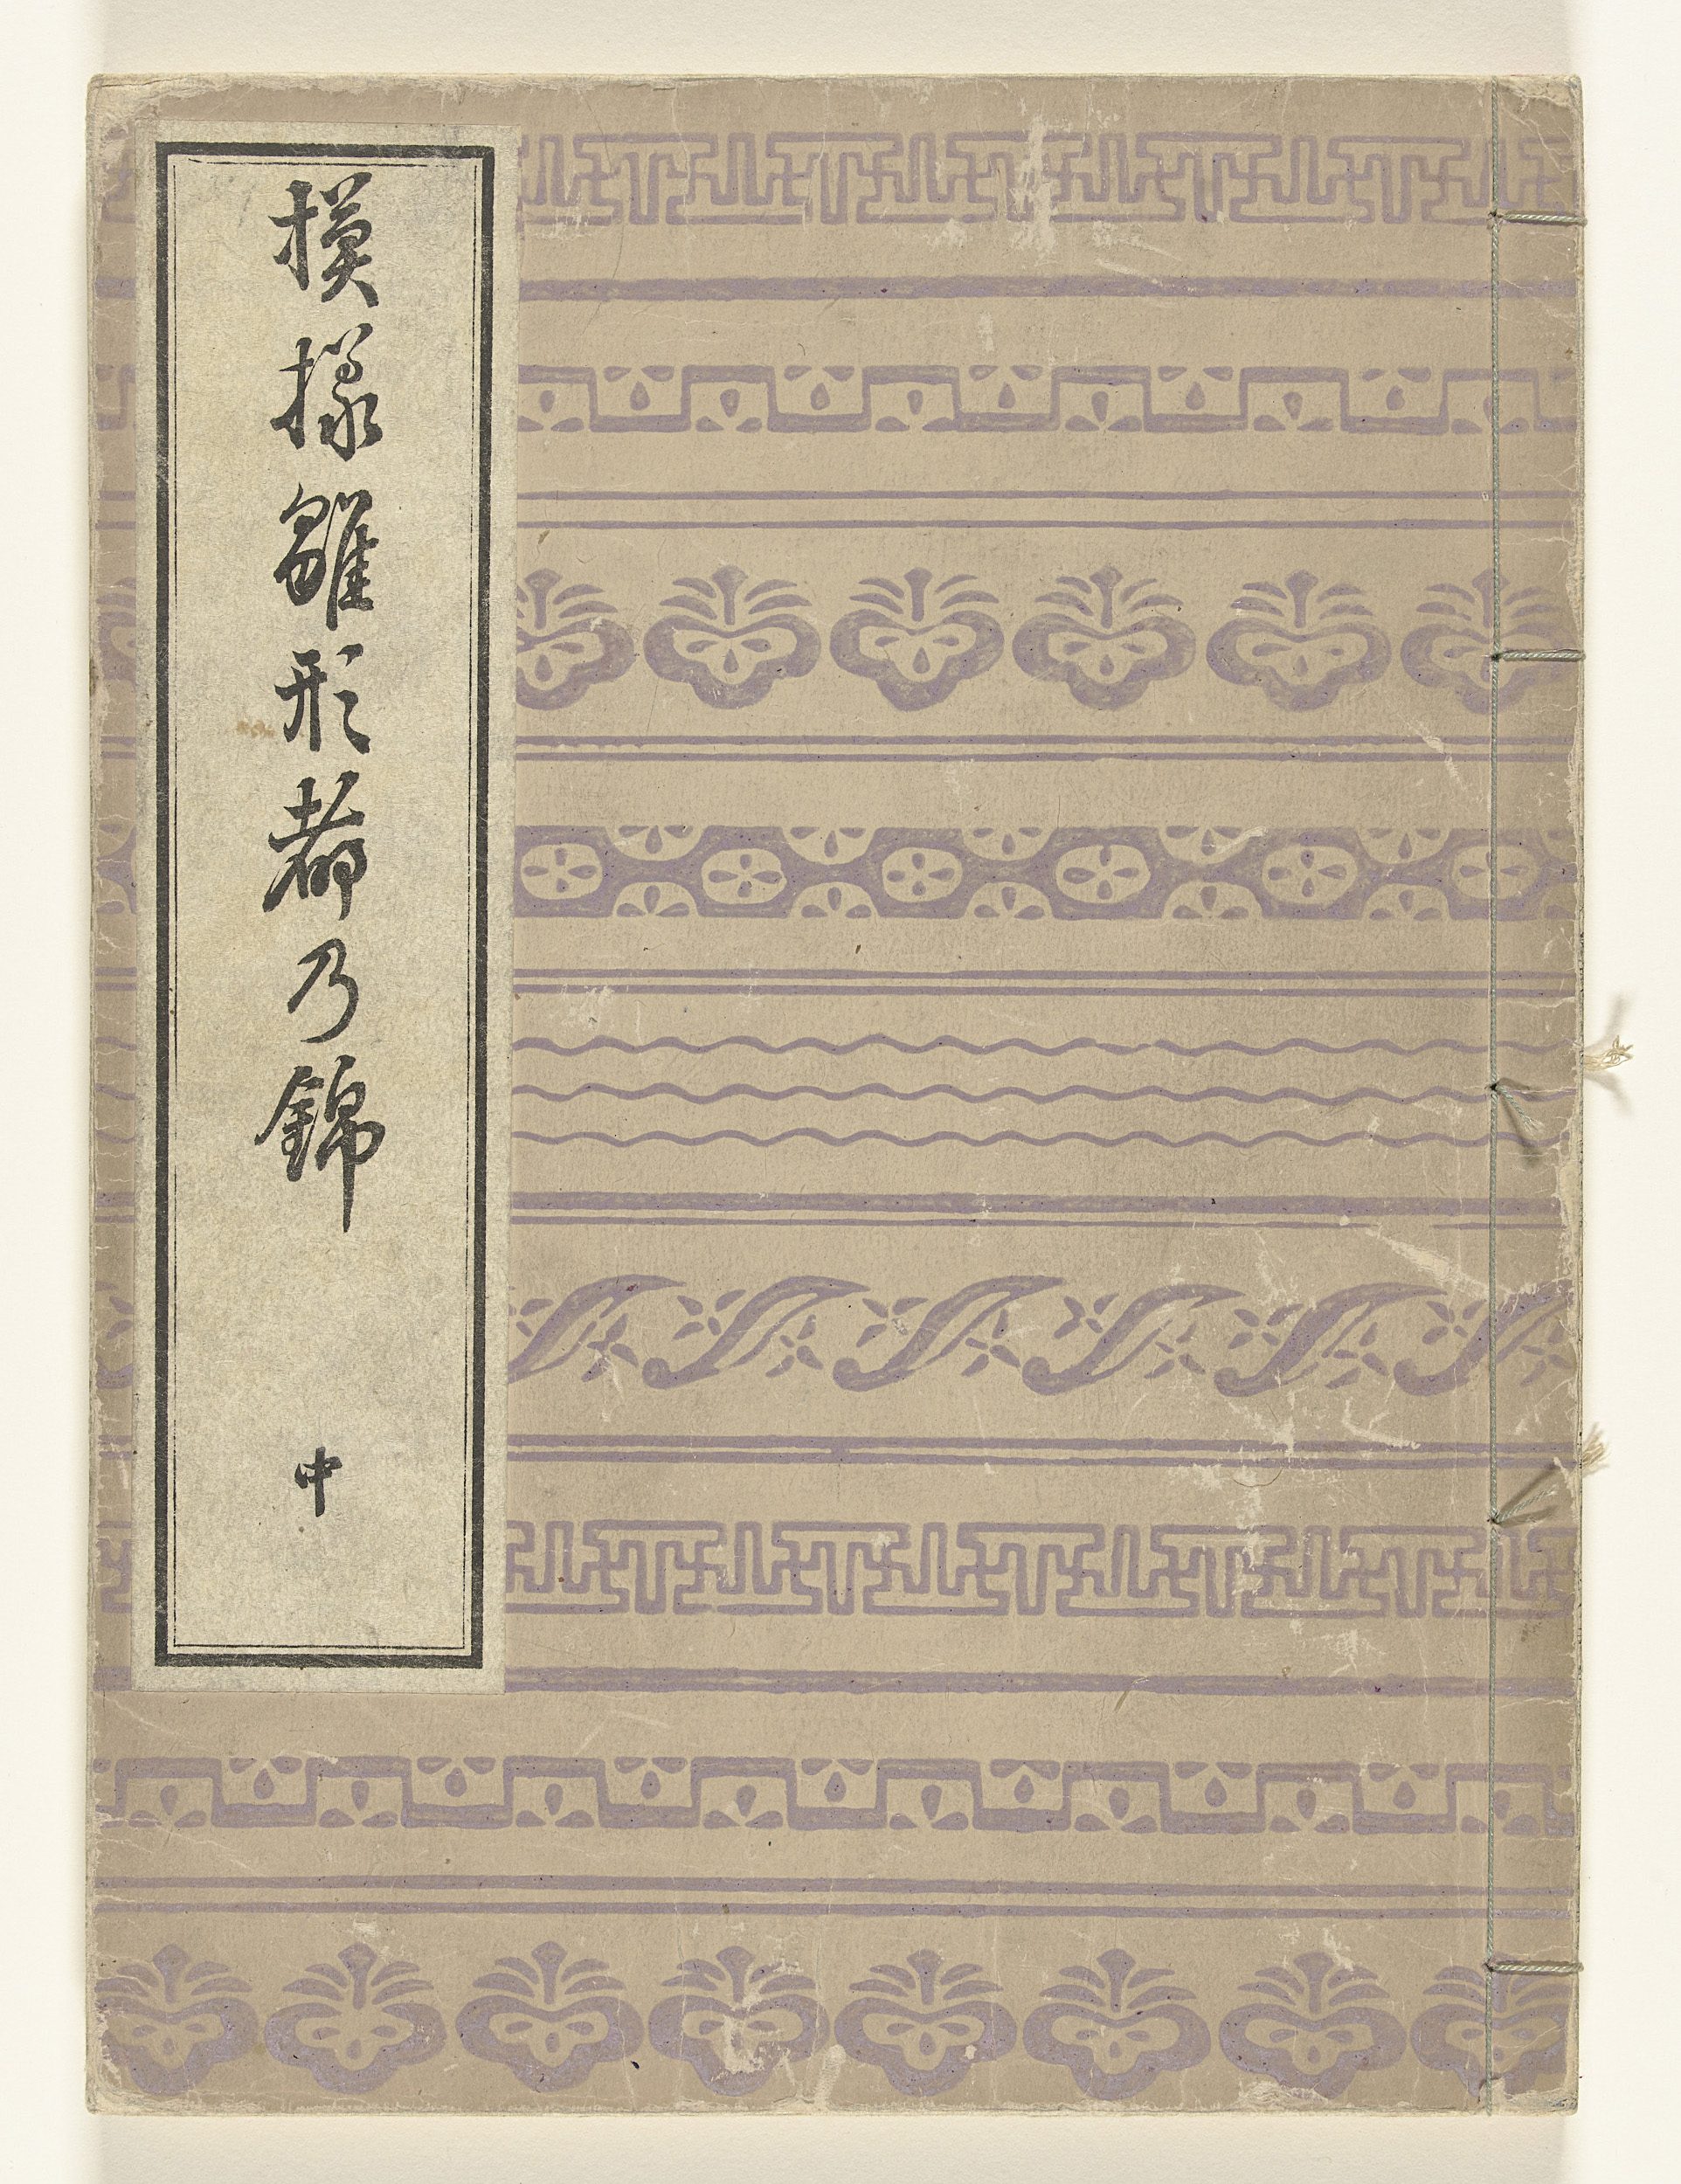 模様雛形都乃錦
中